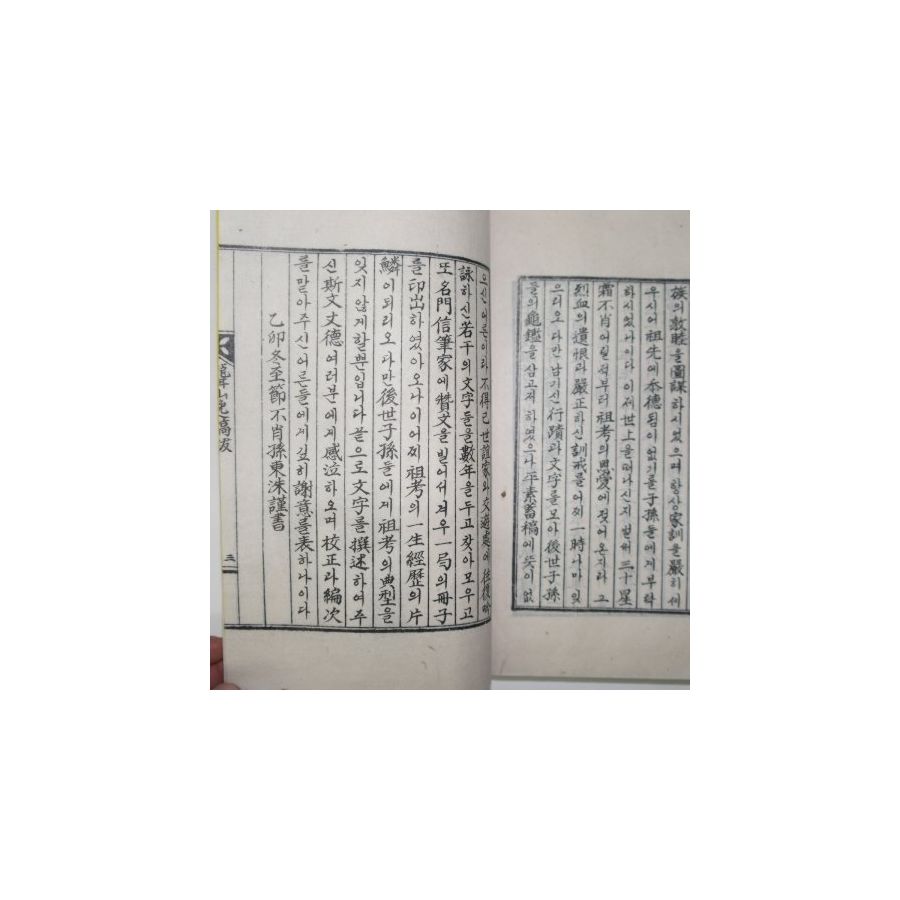 族의 敦睦을 圖謀하시었으며 항상 家訓을 嚴히 세
우시어 祖先에 忝德됨이 없기를 子孫들에게 부탁
하시었나이다 이제 世上을 떠나신지 벌써 三十星
霜 不肖 어릴적부터 祖考의 典愛에 젖어 온지라 그
烈血의 遺恨과 嚴正하신 訓戒를 어찌 一時나마 잊
으리오 다만 남기신 行蹟과 文字를 모아 後世子孫
들의 龜鑑을 삼고저 하였으나 平素 蓄稿에 뜻이 없
으신 어른이라 不得已 世誼家와 交遊處에 往復
詠하신 若干의 文字들을 數年을 두고 찾아 모우고
또 名門信筆家에 贊文을 빌어서 겨우 一局의 冊子
를 印出하였아오나 이어찌 祖考의 一生經歷의 片
鱗이 되리오 다만 後世子孫들에게 祖考의 典型을
잊지 않게 할뿐입니다 끝으로 文字를 撰述하여 주
신 斯文丈德 여러분에게 感泣하오며 校正과 編次
를 맡아 주신 어른들에게 깊히 謝意를 表하나이다
乙卯冬至節 不肖孫 東洙 謹書
三